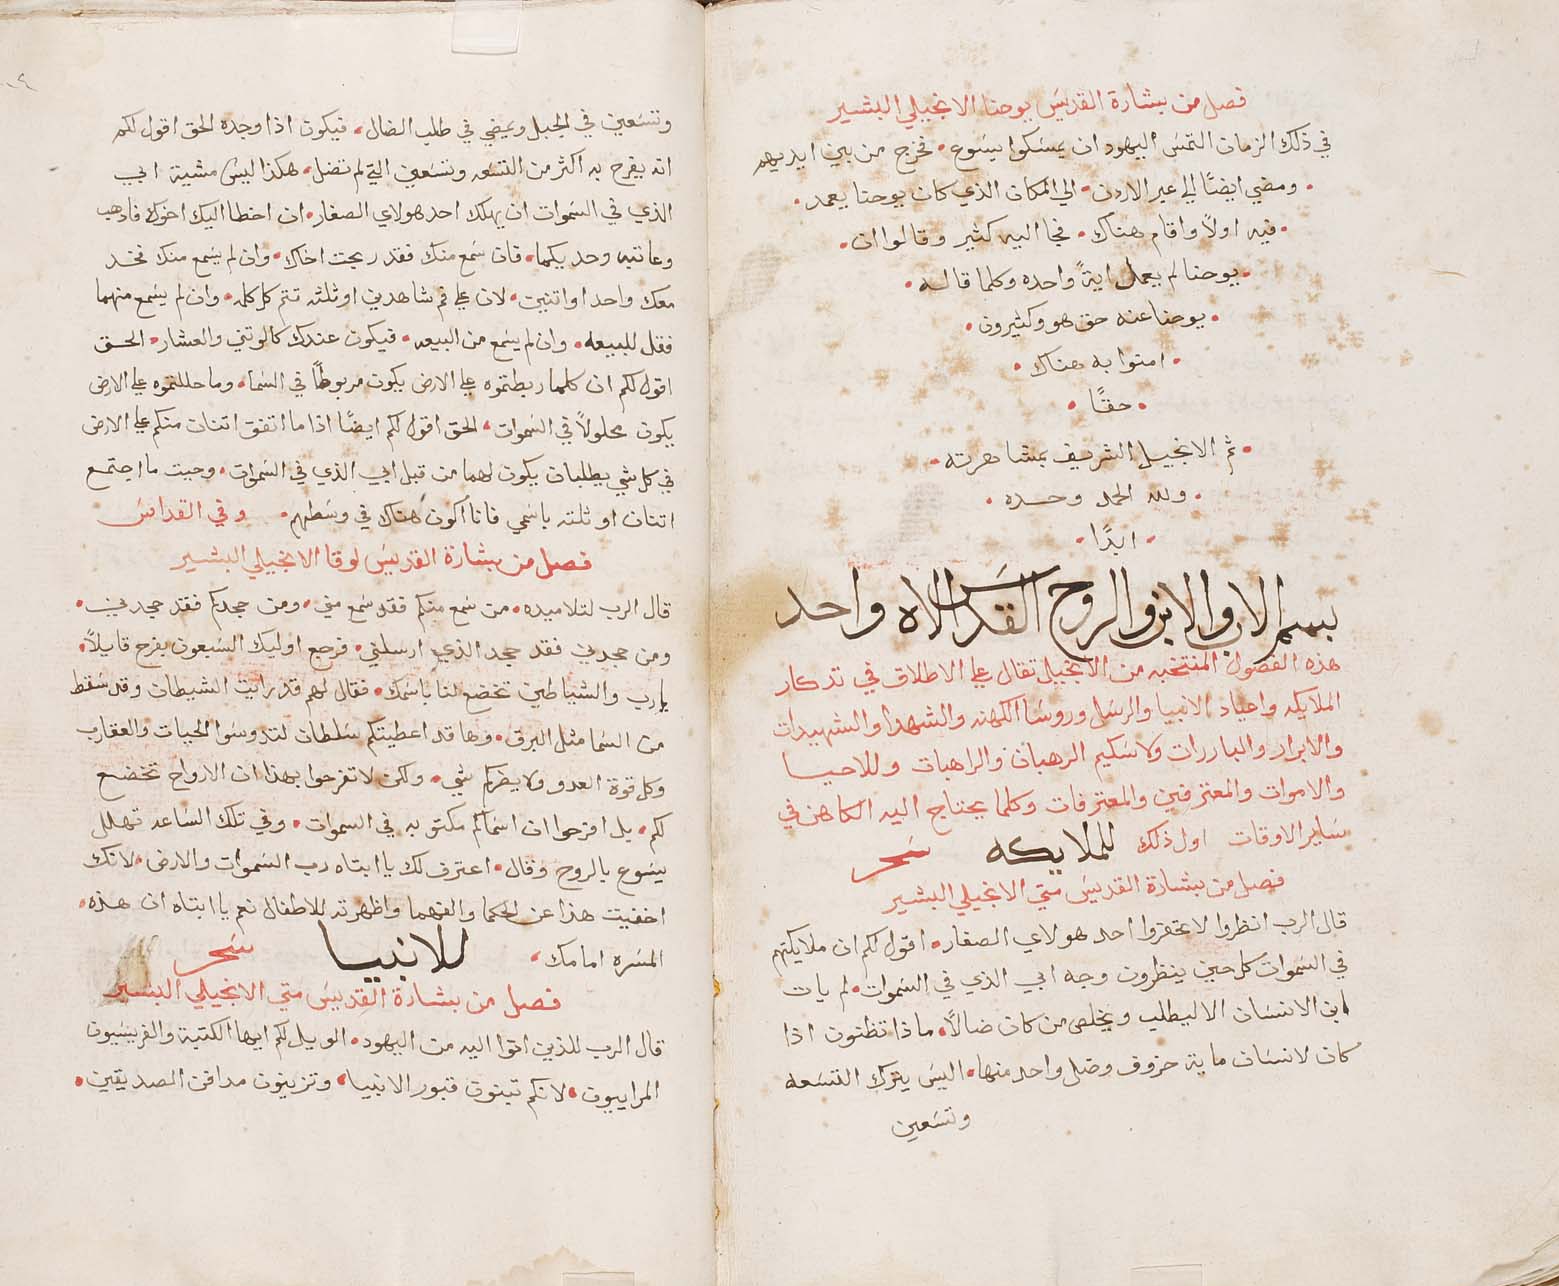 فصل من بشارة القديس يوحنا الانجيلي البشير
في ذلك الزمان التمس اليهود ان يمسكوا يسوع • فخرج من بين ايديهم
• ومضي ايضًا الي عبر الاردن • الي المكان الذي كان يوحنا يعمد •
• فيه اولاً واقام هناك • فجا اليه كثير وقالوا ان •
• يوحنا لم يعمل ايةً واحده وكلما قاله •
• يوحنا عنه حق هو وكثيرون •
• امنوا به هناك •
• حقًا •
• ثم الانجيل الشريف بمشاهرته •
• ولله الحمد وحده •
• ابدًا •
بسم الاب والابن والروح القدس الاه واحد
هذه الفصول المنتخبه من الانجيل تقال علي الاطلاق في تدكار
الملايكه واعياد الانبيا والرسل وروسا الكهنه والشهدا والشهيدات
والابرار والباررات ولاسكيم الرهبان والراهبات وللاحيا
والاموات والمعترفين والمعترفات وكلما يحتاج اليه الكاهن في
ساير الاوقات اول ذلك للملايكه سحر
فصل من بشارة القديس متي الانجيلي البشير
قال الرب انظروا لا تحقروا احد هولاي الصغار • اقول لكم ان ملايكتهم
في السموات كل حين ينظرون وجه ابي الذي في السموات • لم يات
ابن الانسان الا ليطلب ويخلص من كان ضالاً • ماذا تظنون اذا
كان لانسان ماية خروف وضل واحد منها • اليس يترك التسعه
وتسعين
وتسعين في الجبل ويمضي في طلب الضال • فيكون اذا وجده الحق اقول لكم
انه يفرح به اكثر من التسعه وتسعين التي لم تضل • هكذا ليس مشية ابي
الذي في السموات ان يهلك احد هولاي الصغار • ان اخطا اليك اخوك فاذهب
وعاتبه وحديكما • فان سمع منك فقد ربحت اخاك • وان لم يسمع منك فخد
معك واحد او اتنين • لان علي فم شاهدين او ثلثه تتم كل كلمه • وان لم يسمع منهما
فقل للبيعه • وان لم يسمع من البيعه • فيكون عندك كالوثني والعشار • الحق
اقول لكم ان كلما ربطتموه علي الارض يكون مربوطًا في السما • وما حللتموه علي الارض
يكون محلولاً في السموات • الحق اقول لكم ايضًا اذا ما اتفق اتنان منكم علي الارض
في كل شي يطلبان يكون لهما من قبل ابي الذي في السموات • وحيت ما اجتمع
اتنان او ثلثه باسمي فانا اكون هناك في وسطهم • وفي القداس
فصل من بشارة القديس لوقا الانجيلي البشير
قال الرب لتلاميده • من سمع منكم فقد سمع مني • ومن جحدكم فقد جحدني •
ومن جحدني فقد جحد الذي ارسلني • فرجع اوليك السبعون بفرح قايلاً •
يارب والشياطين تخضع لنا باسمك • فقال لهم قد رايت الشيطان وقد سقط
من السما مثل البرق • وها قد اعطيتكم سلطان لتدوسوا الحيات والعقارب
وكل قوة العدو ولا يضركم شي • ولكن لا تفرحوا بهذا ان الارواح تخضع
لكم • بل افرحوا ان اسماكم مكتوبه في السموات • وفي تلك الساعه تهلل
يسوع بالروح وقال • اعترف لك يا ابتاه رب السموات والارض • لانك
اخفيت هذا عن الحكما والفهما واظهرته للاطفال نعم يا ابتاه ان هذه •
المسره امامك • للانبيا سحر
فصل من بشارة القديس متي الانجيلي البشير
قال الرب للذين اتوا اليه من اليهود • الويل لكم ايها الكتبة والفريسيون
المراييون • لانكم تبنون قبور الانبيا • وتزينون مدافن الصديقين •